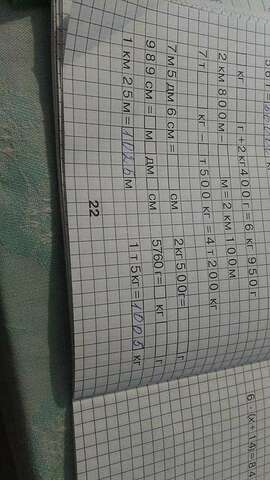 кг г + 2 кг 400 г = 6 кг 950 г
2 км 800 м – м = 2 км 100 м
7 т кг – т 500 кг = 4 т 200 кг
7 м 5 дм 6 см = см 2 кг 500 г = г
989 см = м дм см 5760 г = кг г
1 км 25 м = 1025 м 1 т 5 кг = 1005 кг
22
6 · (x + 14) = 84